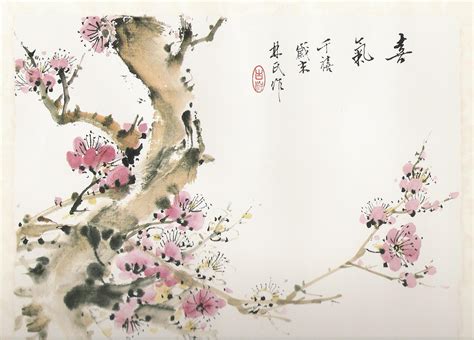 喜氣
千禧
歲末
林民作